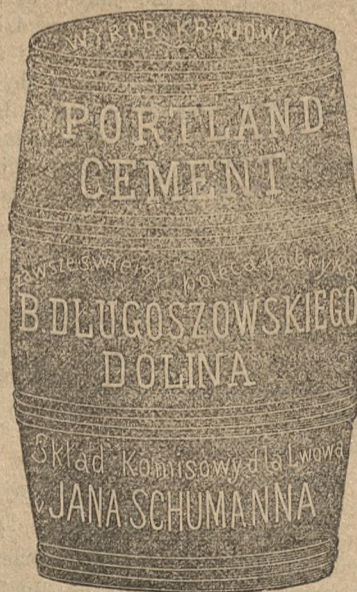 WYROB KRAJOWY
PORTLAND
CEMENT
zawsze świeży poleca fabryka
B. DLUGOSZOWSKIEGO
DOLINA
Skład Komisowy dla Lwowa
JANA SCHUMANNA